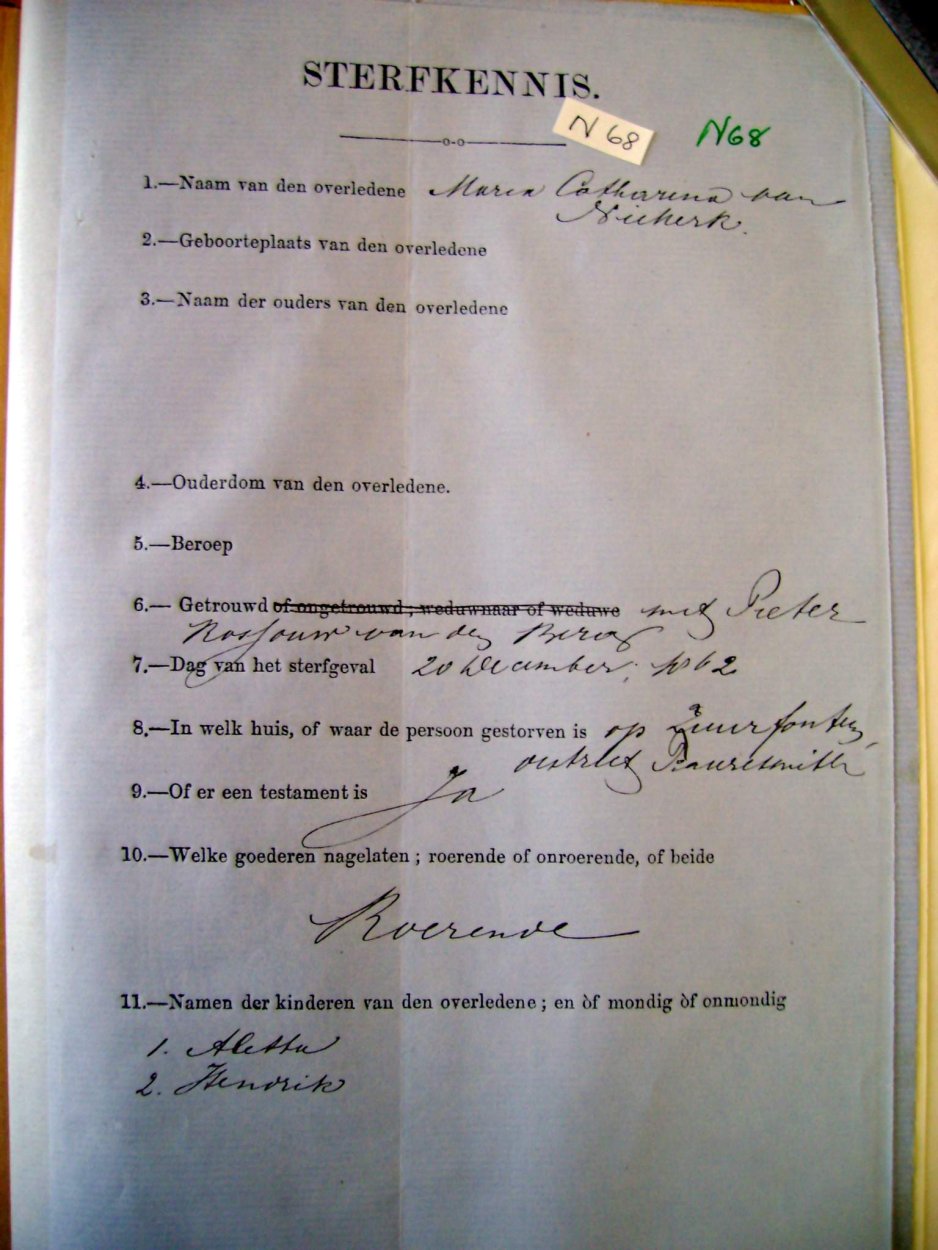 STERFKENNIS.
N68
N68
1.—Naam van den overledene Maria Catharina van
Niekerk.
2.—Geboorteplaats van den overledene
3.—Naam der ouders van den overledene
4.—Ouderdom van den overledene.
5.—Beroep
6.— Getrouwd of ongetrouwd; weduwnaar of weduwe met Pieter
Rossouw van den Berg
7.—Dag van het sterfgeval 20 December, 1862
8.—In welk huis, of waar de persoon gestorven is op Zuurfontein,
district Fauresmith
9.—Of er een testament is Ja
10.—Welke goederen nagelaten; roerende of onroerende, of beide
Roerende
11.—Namen der kinderen van den overledene; en òf mondig òf onmondig
1. Aletta
2. Hendrik